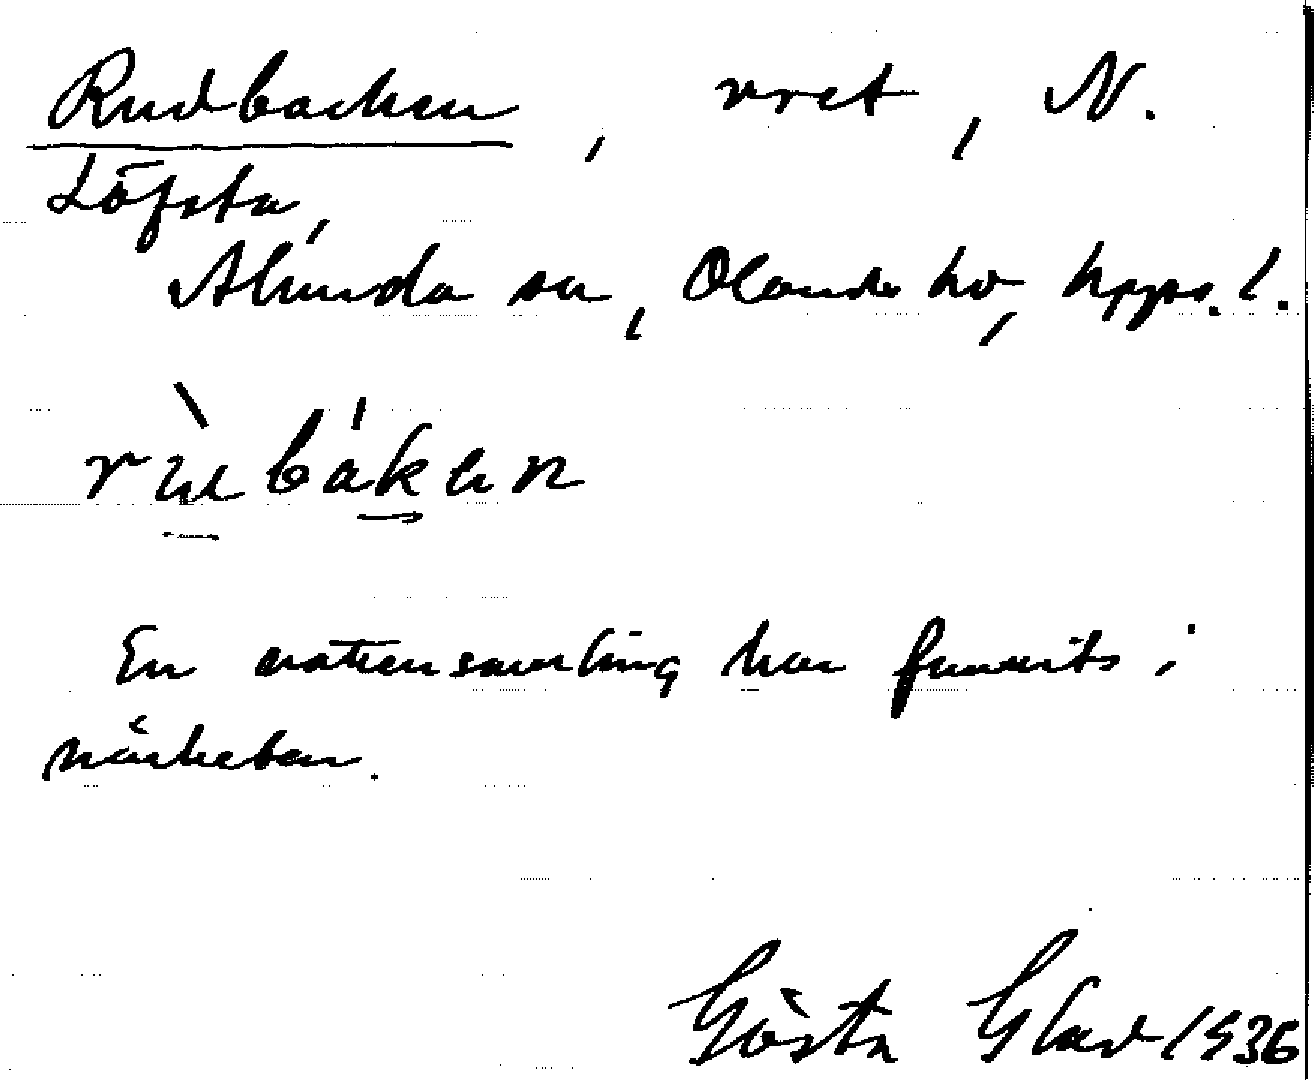 Rudbacken, vret, N.
Löfsta,
Alunda sn, Olands hd, Upps. l.
En vattensamling har funnits i
närheten.
Gösta Glad 1936